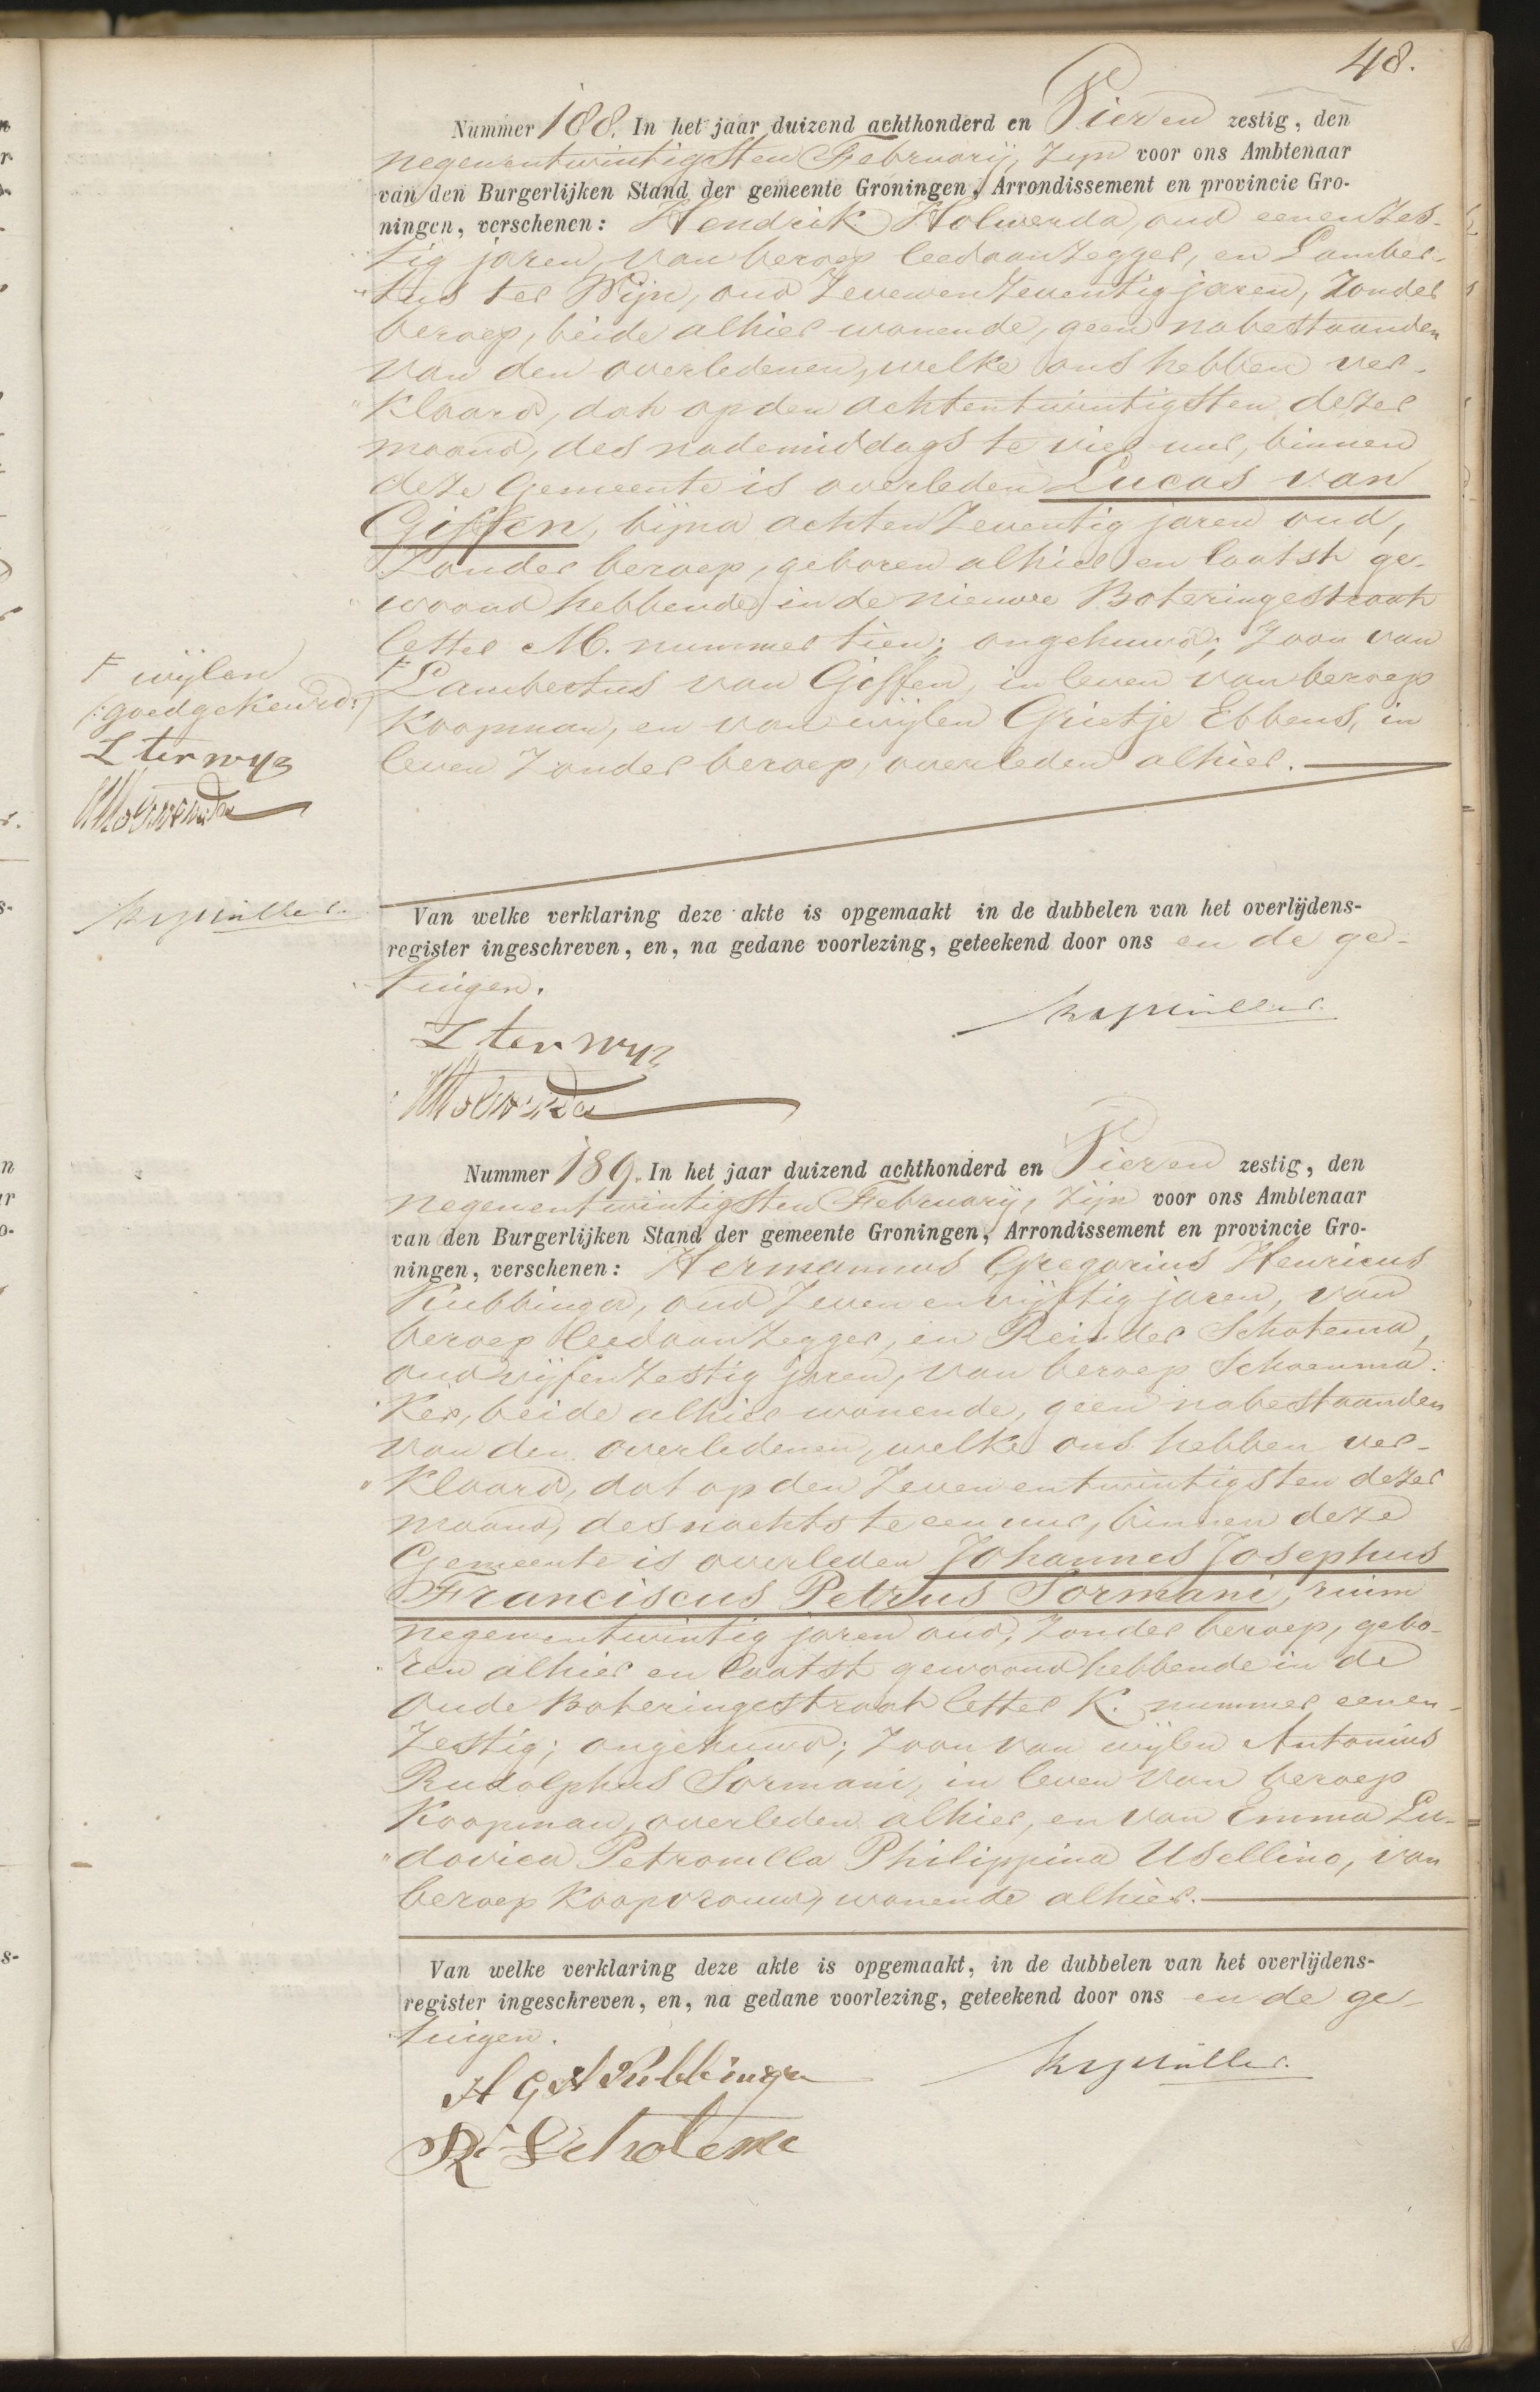 48.
Nummer 188. In het jaar duizend achthonderd en Vieren zestig, den
negenentwintigsten Februarij, zijn voor ons Ambtenaar
van den Burgerlijken Stand der gemeente Groningen, Arrondissement en provincie Gro-
ningen, verschenen: Hendrik Holwerda, oud eenenzes-
tig jaren, van beroep leedaanzegger, en Lamber-
tus ter Wijn, oud zevenenzeventig jaren, zonder
beroep, beide alhier wonende, geen nabestaanden
van den overledenen, welke ons hebben ver-
klaard, dat op den achtentwintigsten dezer
maand, des nademiddags te vier uur, binnen
deze Gemeente is overleden Lucas van
Giffen, bijna achtenzeventig jaren oud,
zonder beroep, geboren alhier en laatst ge-
woond hebbende in de nieuwe Boteringestraat
letter M. nummer tien; ongehuwd; zoon van
F Lambertus van Giffen, in leven van beroep
koopman, en van wijlen Grietje Ebbens, in
leven zonder beroep, overleden alhier.
F wijlen
(:goedgekeurd:)
L ter wyn
HHolwerda
Müller.
Van welke verklaring deze akte is opgemaakt in de dubbelen van het overlijdens-
register ingeschreven, en, na gedane voorlezing, geteekend door ons en de ge-
tuigen.
Müller.
L ter wyn
HHolwerda
Nummer 189. In het jaar duizend achthonderd en Vieren zestig, den
negenentwintigsten Februarij, zijn voor ons Ambtenaar
van den Burgerlijken Stand der gemeente Groningen, Arrondissement en provincie Gro-
ningen, verschenen: Hermannus Gregorius Henricus
Kubbinga, oud zevenenvijftig jaren, van
beroep leedaanzegger, en Reinder Schotema,
oud vijfenzestig jaren, van beroep Schoenma-
ker, beide alhier wonende, geen nabestaanden
van den overledenen, welke ons hebben ver-
klaard, dat op den zevenentwintigsten dezer
maand, des nachts te een uur, binnen deze
Gemeente is overleden Johannes Josephus
Franciscus Petrus Sormani, ruim
negenentwintig jaren oud, zonder beroep, gebo-
ren alhier en laatst gewoond hebbende in de
oude Boteringestraat letter K. nummer eenen-
zestig; ongehuwd; zoon van wijlen Antonius
Rudolphus Sormani, in leven van beroep
koopman, overleden alhier, en van Emma Lu-
dovica Petronella Philippina Usellino, van
beroep koopvrouw, wonende alhier.
Van welke verklaring deze akte is opgemaakt, in de dubbelen van het overlijdens-
register ingeschreven, en, na gedane voorlezing, geteekend door ons en de ge-
tuigen.
Müller.
H G H Kubbinga
R. Schotema